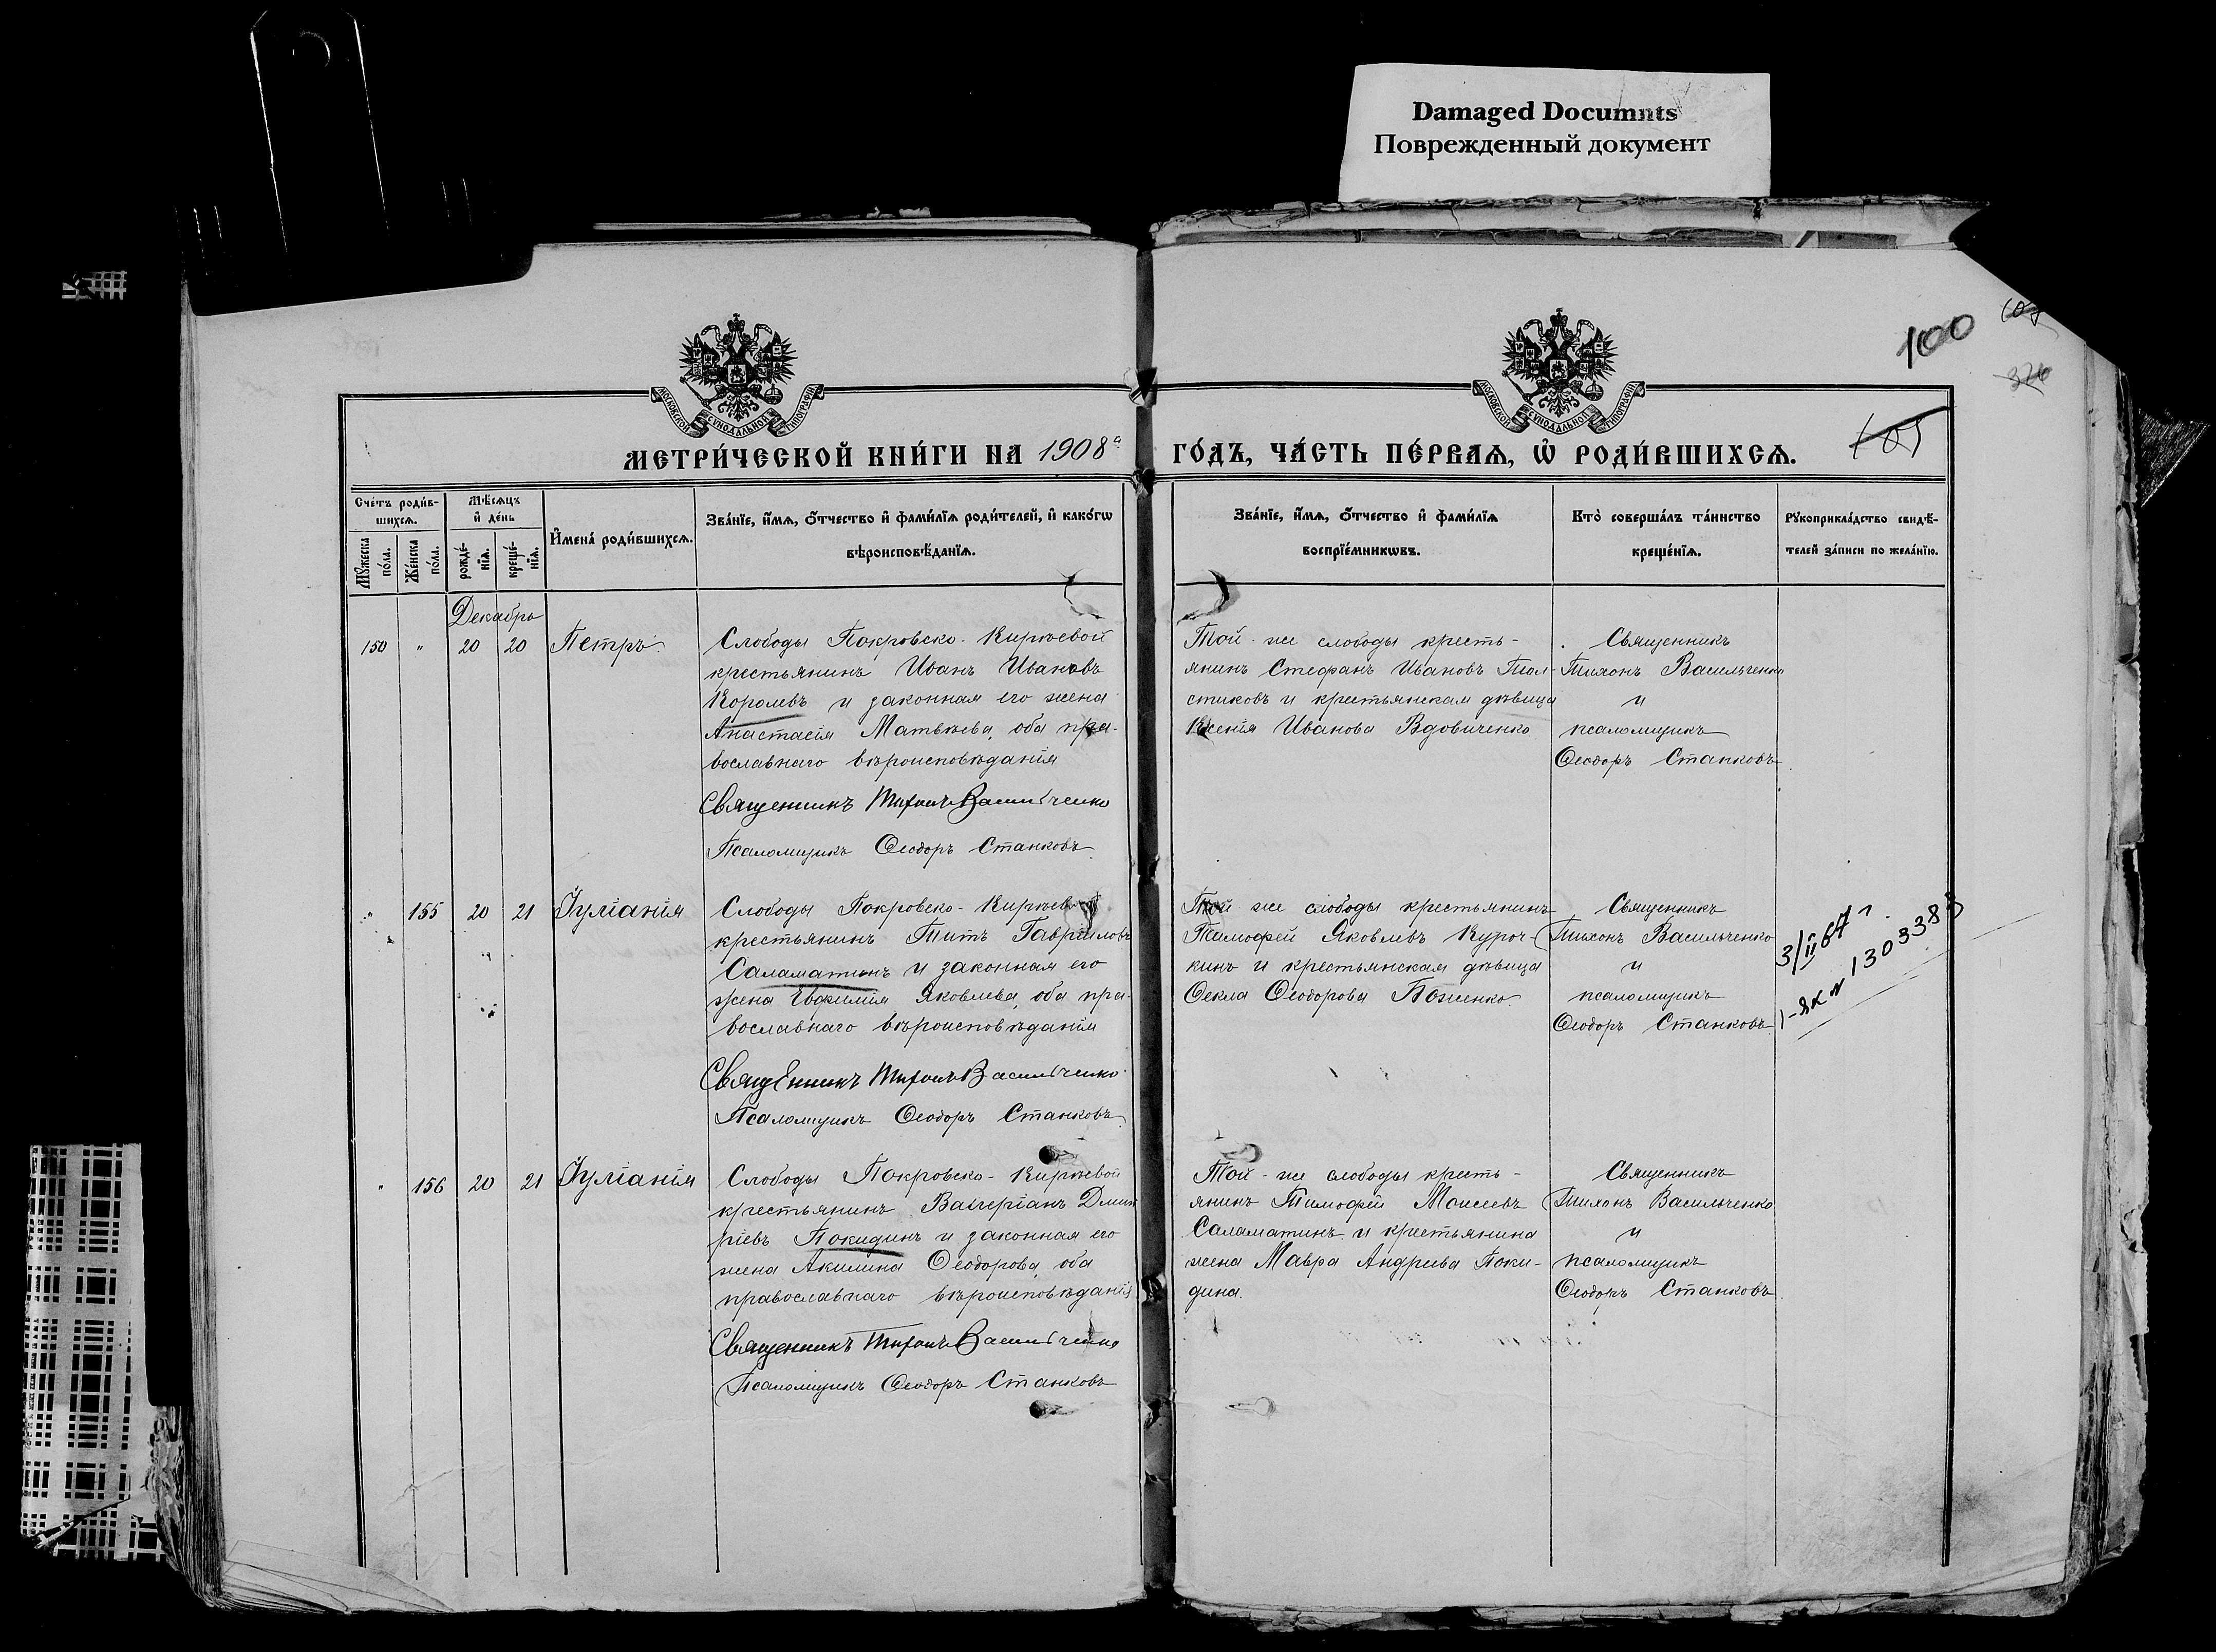 Damaged Documnts
Поврежденный документ
100
326
МОСКОВСКОЙ СѴНОДАЛЬНОЙ ТИПОГРАФІИ
МОСКОВСКОЙ СѴНОДАЛЬНОЙ ТИПОГРАФІИ
МЕТРИ́ЧЕСКОЙ КНИ́ГИ НА 1908 ГО́ДЪ, ЧА́СТЬ ПЕ́РВАѦ, Ѡ҆ РОДИ́ВШИХСѦ.
105
Сче́тъ роди́в-
шихсѧ.
Мѣ́сѧцъ
и҆ де́нь
Мꙋ́жеска по́ла.
Же́нска по́ла.
рожде́-нїѧ.
креще́-нїѧ.
И҆мена̀ роди́вшихсѧ.
Зва́нїе, и҆́мѧ, ѻ҆́тчество и҆ фами́лїѧ роди́телей, и҆ како́гѡ
вѣроисповѣ́данїѧ.
Зва́нїе, и҆́мѧ, ѻ҆́тчество и҆ фами́лїѧ
воспрїе́мникѡвъ.
Кто̀ соверша́лъ та́инство
креще́нїѧ.
Рꙋкоприкла́дство свидѣ́-
телей за́писи по жела́нїю.
Декабрь
150 " 20 20 Петръ.
Слободы Покровско-Кирѣевой
крестьянинъ Иванъ Ивановъ
Королевъ и законная его жена
Анастасія Матвѣева, оба пра-
вославнаго вѣроисповѣданія
Священникъ Тихонъ Васильченко
Псаломщикъ Ѳеодоръ Станковъ.
Той-же слободы кресть-
янинъ Стефанъ Ивановъ Тол-
стиковъ и крестьянская дѣвица
Ксенія Иванова Вдовиченко
Священникъ
Тихонъ Васильченко
и
псаломщикъ
Ѳеодоръ Станковъ.
" 155 20 21 Іуліанія
Слободы Покровско-Кирѣевой
крестьянинъ Титъ Гавріиловъ
Саламатинъ и законная его
жена Евфимія Яковлева, оба пра-
вославнаго вѣроисповѣданія
Священникъ Тихонъ Васильченко
Псаломщикъ Ѳеодоръ Станковъ.
Той-же слободы крестьянинъ
Тимофей Яковлевъ Куроч-
кинъ и крестьянская дѣвица
Ѳекла Ѳеодорова Поженко.
Священникъ
Тихонъ Васильченко
и
псаломщикъ
Ѳеодоръ Станковъ.
3/II 67 г.
1-як № 1303383
" 156 20 21 Іуліанія
Слободы Покровско-Кирѣевой
крестьянинъ Валеріанъ Димит
ріевъ Покидинъ и законная его
жена Акилина Ѳеодорова, оба
православнаго вѣроисповѣданія
Священникъ Тихонъ Васильченко
Псаломщикъ Ѳеодоръ Станковъ
Той-же слободы кресть-
янинъ Тимофей Моисеевъ
Саламатинъ и крестьянина
жена Мавра Андреева Поки-
дина.
Священникъ
Тихонъ Васильченко
и
псаломщикъ
Ѳеодоръ Станковъ.